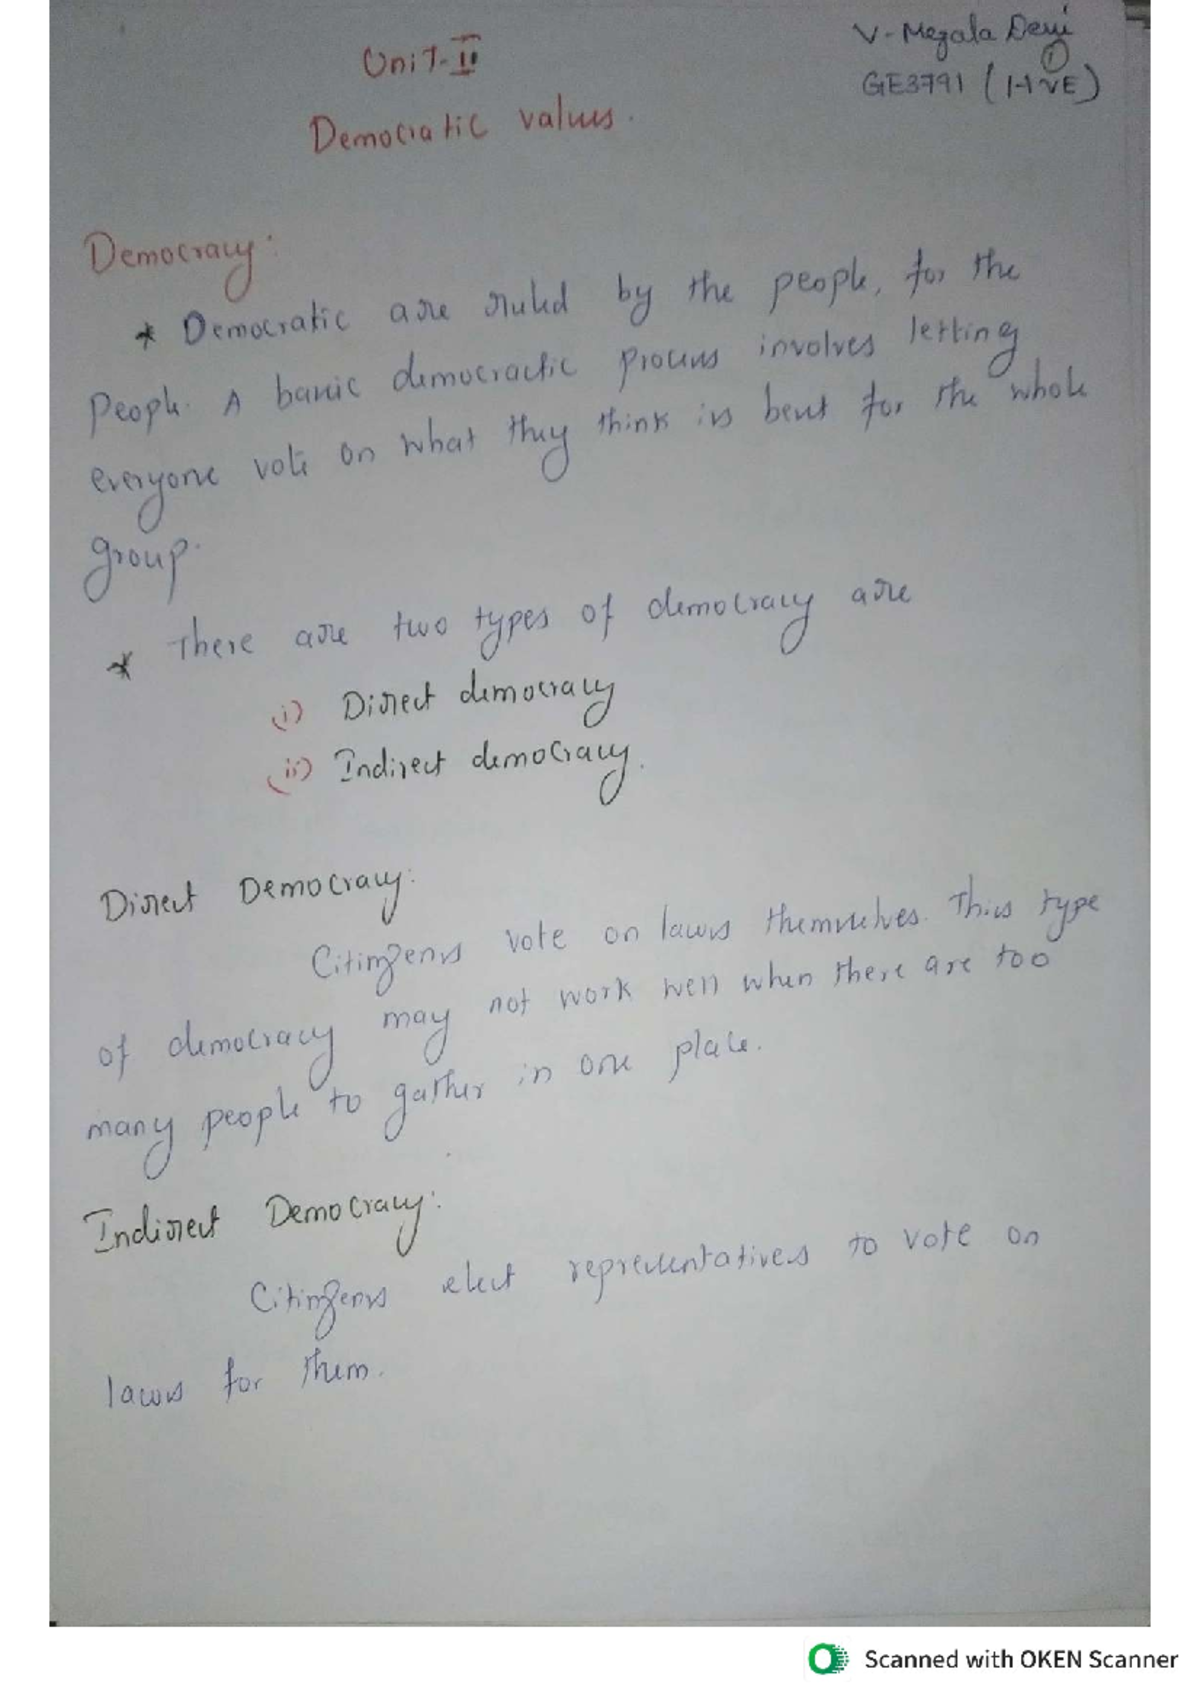 V. Megala Devi
1
GE3791 (HVE)
Unit-II
Democratic values.
Democracy:
* Democratic are ruled by the people, for the
People. A basic democractic process involves letting
everyone vote on what they think is best for the whole
group.
* There are two types of democracy are
(i) Direct democracy
(ii) Indirect democracy.
Direct Democracy:
Citizens vote on laws themselves. This type
of democracy may not work well when there are too
many people to gather in one place.
Indirect Democracy:
Citizens elect representatives to vote on
laws for them.
Scanned with OKEN Scanner